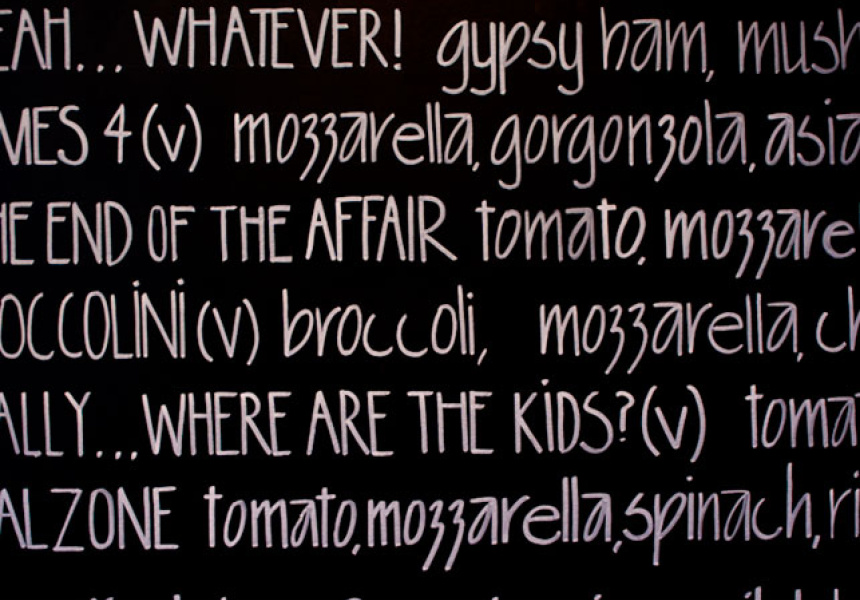 EAH... WHATEVER! gypsy ham, mush
MES 4 (v) mozzarella, gorgonzola, asia
HE END OF THE AFFAIR tomato, mozzare
OCCOLINI (v) broccoli, mozzarella, ch
ALLY... WHERE ARE THE KIDS? (v) toma
ALZONE tomato, mozzarella, spinach, ri